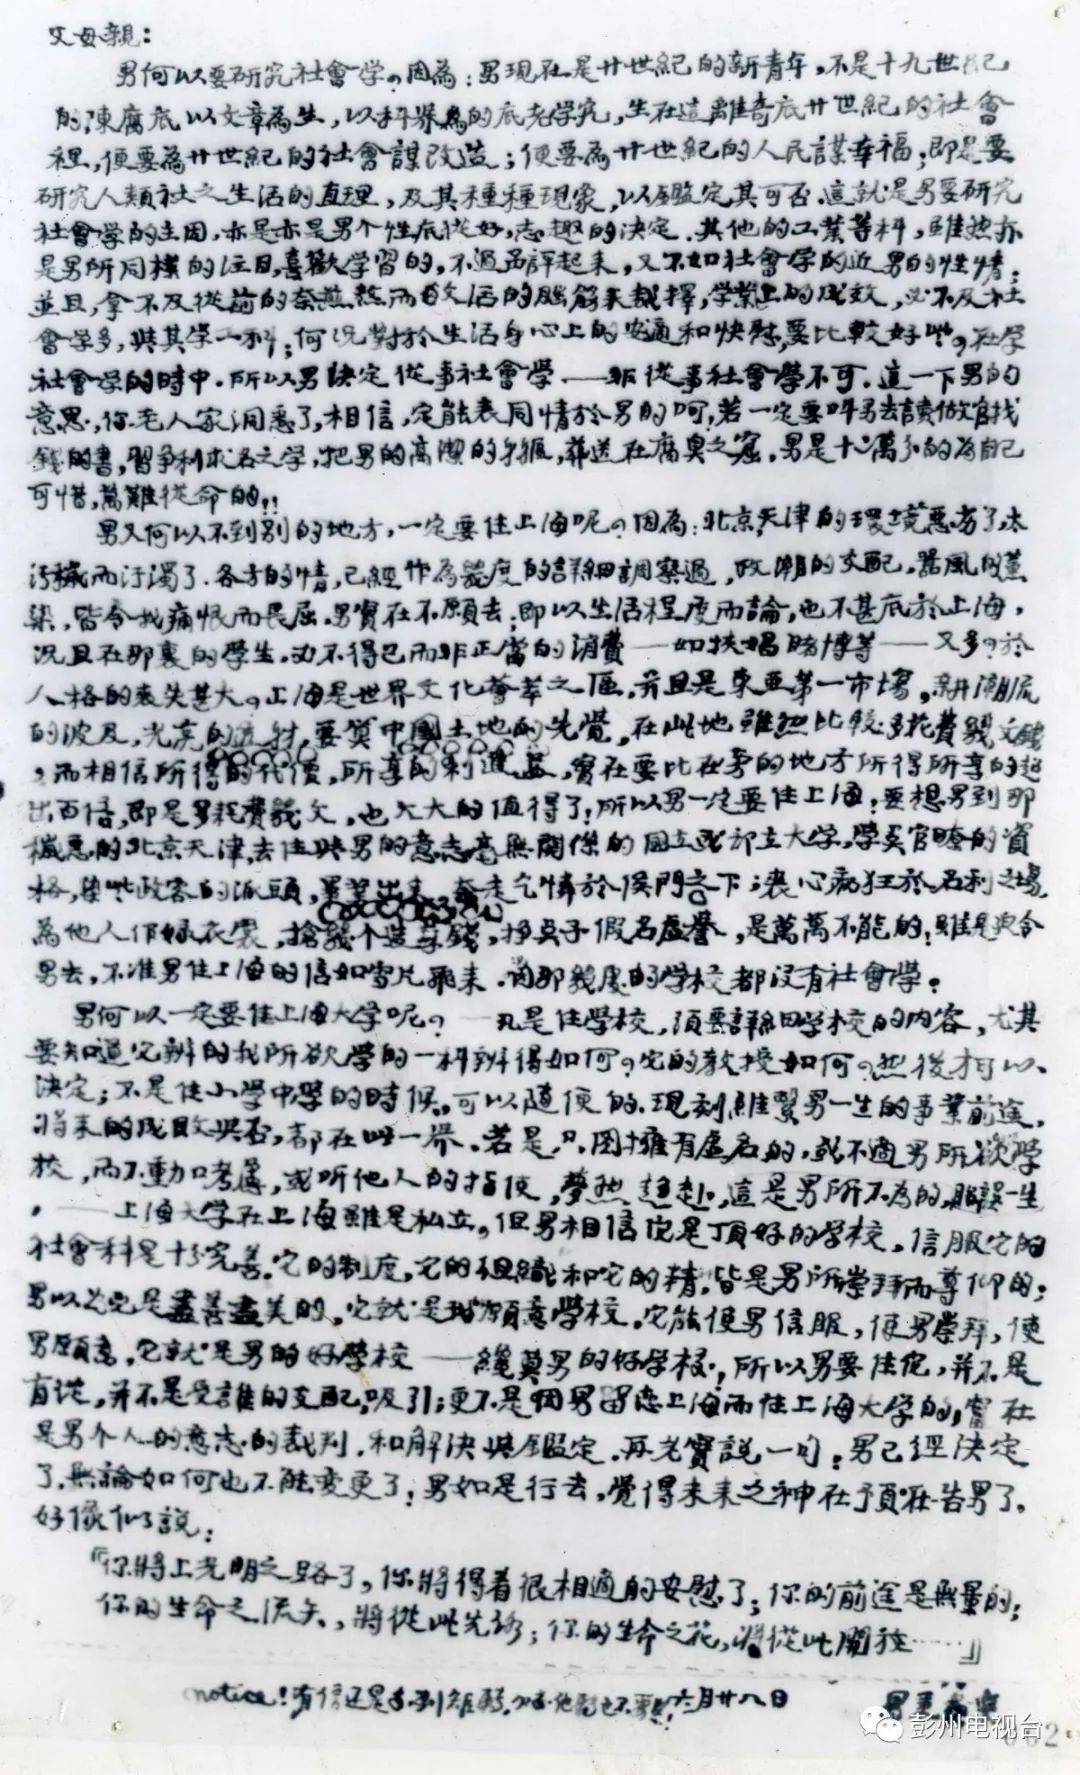 父母親：
男何以要研究社會学？因為：男現在是廿世紀的新青年，不是十九世紀
的陳腐底以文章為生，以科舉為的底老学究，生在這離奇底廿世紀的社會
裡，便要為廿世紀的社會謀改造；便要為廿世紀的人民謀幸福；即是要
研究人類社之生活的真理，及其種種現象，以鑑定其可否。這就是男要研究
社會学的主因，亦是亦是男个性底從好，志趣的決定。其他的工業等科，雖然亦
是男所同樣的注目，喜歡学習的，不過品評起来，又不如社會学的近男的性情；
並且，拿不及從前的 而 的腦筋来裁擇，学業上的成效，必不及社
會学多，與其学一科；何况對於生活身心上的安適和快慰，要比較好些。在学
社會学的時中。所以男決定從事社會學——非從事社會學不可。這一下男的
意思，你老人家洞悉了，相信，定能表同情於男的呵，若一定要叫男去讀做官找
錢的書，習爭利求名之学，把男的高潔的 ，葬送在腐臭之窟，男是十二萬分的為自己
可惜，萬難從命的！！
男又何以不到别的地方，一定要住上海呢？因為：北京天津的環境惡劣了，太
污穢而汙濁了。各方的情，已經作為幾度的詳細調察過，政潮的支配，惡風的薰
染，皆令我痛恨而畏屈，男實在不願去；即以生活程度而論，也不甚底於上海，
况且在那裏的学生，必不得已而非正當的消費——如挾娼賭博等——又多？於
人格的丧失甚大。上海是世界文化薈萃之區，并且是東亞第一市場，新潮流
的波及，光亮的 射，要算中國土地的先覺，在此地雖然比較多花費幾文錢
，而相信所得的代價，所享的利益，實在要比在旁的地方所得所享的超
出百倍，即是多耗費幾文，也大大的值得了；所以男一定要住上海；要想男到那
穢惡的北京天津，去住與男的意志毫無關係的國立或部立大学，學其官瞭的資
格，染些政客的派頭， 出来，奔走乞憐於侯門言下；喪心病狂於名利之場，
為他人作嫁衣裳，搶幾个造孽錢，挣点子假名虛譽，是萬萬不能的；雖是要令
男去，不准男住上海的信如雪片飛来。因那幾處的学校都没有社會學。
男何以一定要住上海大学呢？——凡是住学校，須要詳細学校的内容，尤其
要知道它辦的我所欲学的一科辦得如何？它的教授如何？然後才可以
決定；不是住小学中學的時候，可以隨便的。現刻維繫男一生的事業前途，
将来的成敗與否，都在此一舉。若是只圖擁有虛名的，或不適男所欲學
校，而不動口考慮，或听他人的指使，夢然趋赴，這是男所不為的，貽誤一生
。——上海大学在上海雖是私立，但男相信它是頂好的学校，信服它的
社會科是十分完善。它的制度，它的組織和它的精，皆是男所崇拜而尊仰的；
男以为它是盡善盡美的，它就是我願意學校，它能使男信服，使男崇拜，使
男願意，它就是男的好學校——總算男的好学校；所以男要住它，并不是
盲從，并不是受誰的支配，吸引；更不是個男留恋上海而住上海大学的，實在
是男个人的意志的裁判，和解決與鑑定。再老實説一句：男已經決定
了，無論如何也不能变更了；男如是行去，覺得未来之神在予預在告男了。
好像似説：
「你將上光明之路了，你將得着很相適的安慰了；你的前途是無量的；
你的生命之流矢，將從此先路；你的生命之花，將從此開放……」
notice！有信还是 到 他 也不要！六月廿八日
男
彭州电视台